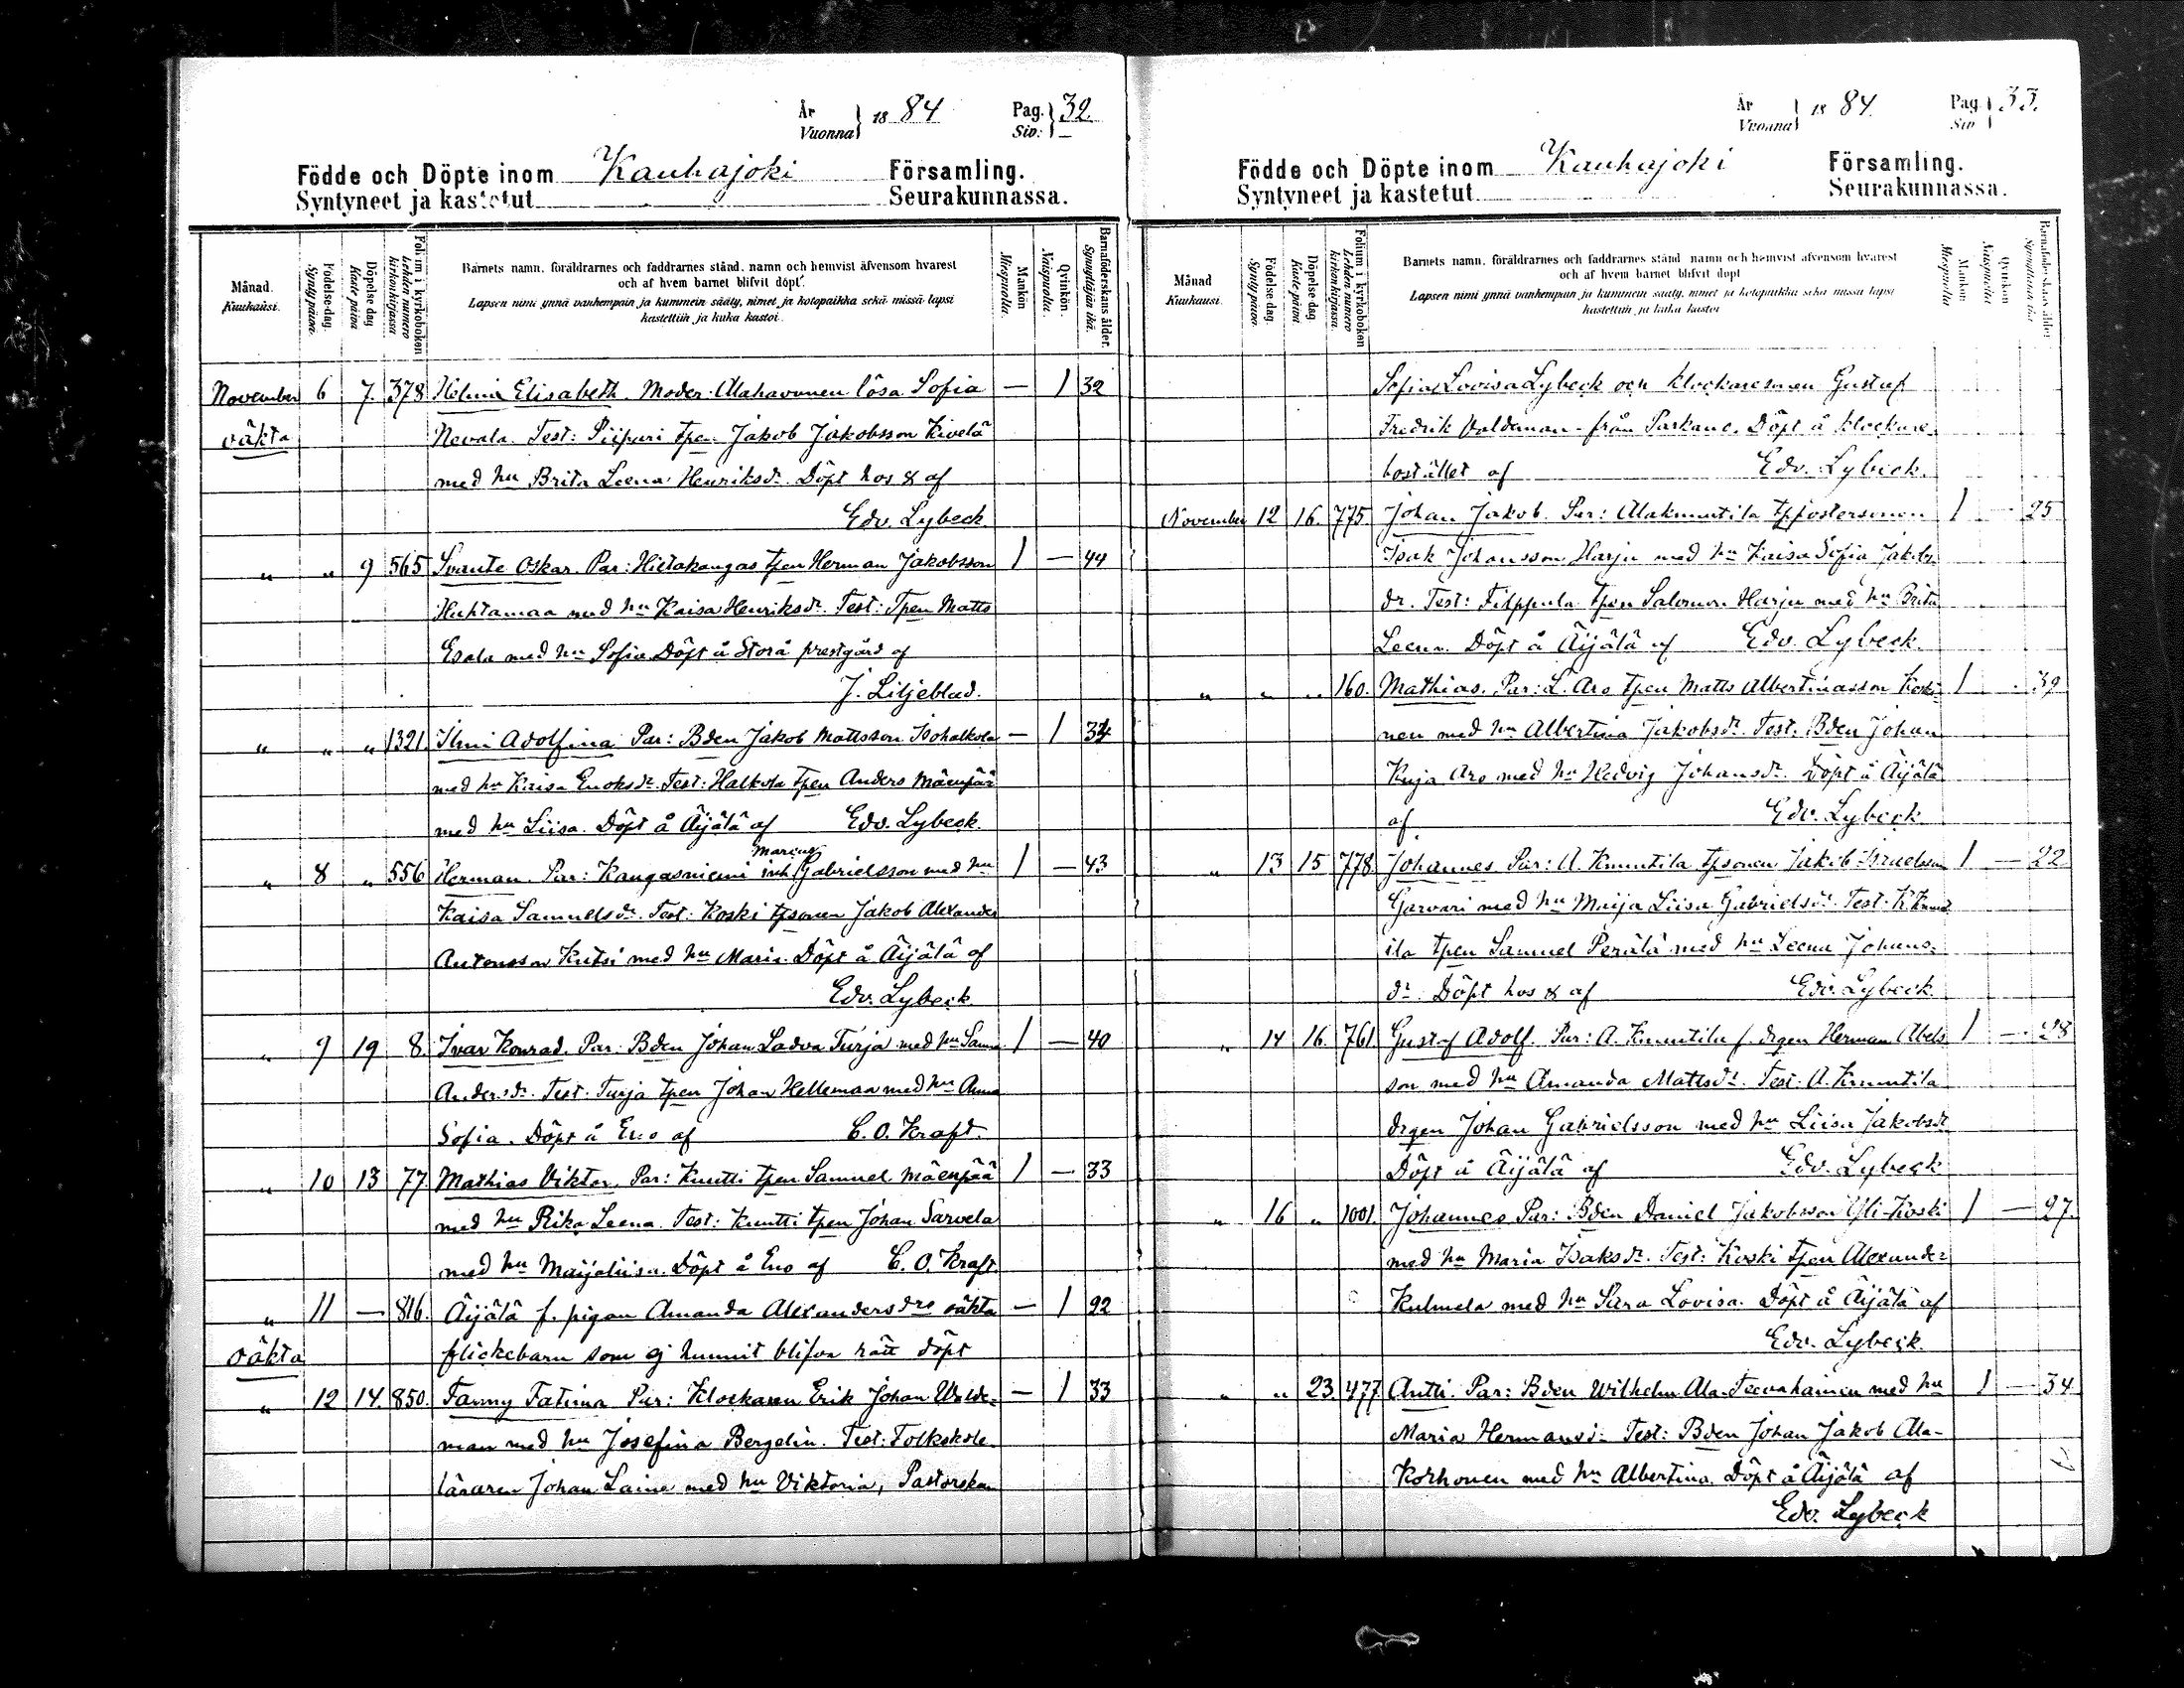 År
Vuonna 1884
Pag. 32.
Siv:
Födde och Döpte inom Kauhajoki Församling.
Syntyneet ja kastetut Seurakunnassa.
Månad.
Kuukausi.
Födelse-dag.
Synty päivä.
Döpelse dag
Kaste päivä
Folium i kyrkoboken
Lehden numero
kirkonkirjassa
Barnets namn, föräldrarnes och faddrarnes stånd, namn och hemvist äfvensom hvarest
och af hvem barnet blifvit döpt.
Lapsen nimi ynnä vanhempain ja kummein sääty, nimet ja kotopaikka sekä missä lapsi
kastettiin ja kuka kastoi.
Mankön
Miespuolia.
Qvinkön.
Naispuolia.
Barnaföderskans ålder.
Synnyttäjän ikä.
November 6 7. 378 Helmi Elisabeth. Moder: Alahavunen lösa Sofia — 1 32
oäkta Nevala. Test: Piipari tpen Jakob Jakobsson Kivelä
med hu Brita Leena Henriksdr. Döpt hos & af
Edv. Lybeck
" " 9 565 Svante Oskar. Par: Hietakangas tpen Herman Jakobsson 1 — 44
Huhtamaa med hu Kaisa Henriksdr. Test: Tpen Matts
Esala med hu Sofia. Döpt å Storå prestgård af
J. Liljeblad.
" " " 1321 Ilmi Adolfina Par: Bden Jakob Mattsson Isohalkola — 1 34
med hu Kaisa Enoksdr. Test: Halkola tpen Anders Mäenpää
med hu Liisa. Döpt å Äijälä af Edv. Lybeck.
" 8 " 556 Herman. Par: Kangasniemi inh Marcus Gabrielsson med hu 1 — 43
Kaisa Samuelsdr. Test: Koski tpsonen Jakob Alexander
Antonsson Kutsi med hu Maria. Döpt å Äijälä af
Edv. Lybeck
" 9 19 8. Ivar Konrad. Par: Bden Johan Ladva Turja med hu Sanna 1 — 40
Andersdr. Test: Turja tpen Johan Hellemaa med hu Anna
Sofia. Döpt å Eno af C. O. Kraft.
" 10 13 77 Mathias Viktor. Par: Kuutti tpen Samuel Mäenpää 1 — 33
med hu Rika Leena. Test: Kuutti tpen Johan Sarvela
med hu Maijaliisa. Döpt å Eno af C. O. Kraft
" 11 — 816. Äijälä f. pigan Amanda Alexandersdrs oäkta — 1 22
oäkta flickebarn som ej hunnit blifva rätt döpt
" 12 14. 850. Fanny Fatima Par: Klockaren Erik Johan Walde- — 1 33
man med hu Josefina Bergelin. Test: Folkskole
läraren Johan Laine med hu Viktoria, Pastorskan
År
Vuonna 1884.
Pag. 33.
Siv
Födde och Döpte inom Kauhajoki Församling.
Syntyneet ja kastetut Seurakunnassa.
Månad
Kuukausi.
Födelse dag.
Synty päivä.
Döpelse dag
Kaste päivä
Folium i kyrkoboken
Lehden numero
kirkonkirjassa.
Barnets namn, föräldrarnes och faddrarnes stånd namn och hemvist äfvensom hvarest
och af hvem barnet blifvit döpt
Lapsen nimi ynnä vanhempain ja kummein sääty, nimet ja kotopaikka sekä missä lapsi
kastettiin ja kuka kastoi
Mankön
Miespuolia
Qvinkön
Naispuolia
Barnaföderskans ålder
Synnyttäjän ikä
Sofia Lovisa Lybeck och klockaresonen Gustaf
Fredrik Valdeman från Parkano. Döpt å klockare-
bostället af Edv. Lybeck.
November 12 16. 775 Johan Jakob. Par: Alaknuutila tpfostersonen 1 25
Isak Johansson Harju med hu Kaisa Sofia Jakobs
dr. Test: Filppula tpen Salomon Harju med hu Brita
Leena. Döpt å Äijälä af Edv. Lybeck.
" " " 160. Mathias. Par: L. Aro tpen Matts Albertinasson Koski- 1 39
nen med hu Albertina Jakobsdr. Test: Bden Johan
Kuja Aro med hu Hedvig Johansdr. Döpt å Äijälä
af Edv. Lybeck
" 13 15 778. Johannes Par: A. Knuutila tpsonen Jakob Israelsson 1 — 22
Garvari med hu Maija Liisa Gabrielsdr. Test: K. Knuut
ila tpen Samuel Perälä med hu Leena Johans-
dr. Döpt hos & af Edv. Lybeck
" 14 16. 761. Gustaf Adolf. Par: A. Knuutila f. drgen Herman Abels 1 — 28
son med hu Amanda Mattsdr. Test: A. Knuutila
drgen Johan Gabrielsson med hu Liisa Jakobsdr.
Döpt å Äijälä af Edv. Lybeck
" 16 " 1001. Johannes Par: Bden Daniel Jakobsson Yli-Koski 1 — 27.
med hu Maria Isaksdr. Test: Koski tpen Alexander
Kulmala med hu Sara Lovisa. Döpt å Äijälä af
Edv. Lybeck.
" " 23. 477 Antti. Par: Bden Wilhelm Ala-Teevahainen med hu 1 — 34
Maria Hermansd. Test: Bden Johan Jakob Ala-
Korhonen med hu Albertina. Döpt å Äijälä af
Edv. Lybeck